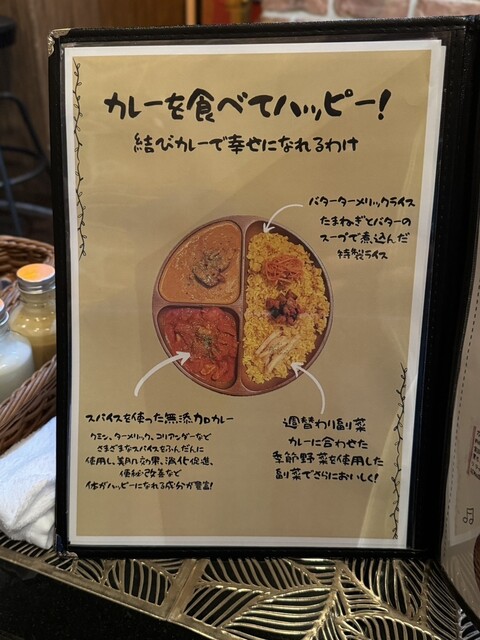 カレーを食べてハッピー!
結びカレーで幸せになれるわけ
バターターメリックライス
たまねぎとバターの
スープで煮込んだ
特製ライス
スパイスを使った無添加カレー
クミン、ターメリック、コリアンダーなど
さまざまなスパイスをふんだんに
使用し、美肌効果、消化促進、
便秘改善など
体がハッピーになれる成分が豊富!
週替わり副菜
カレーに合わせた
季節野菜を使用した
副菜でさらにおいしく!